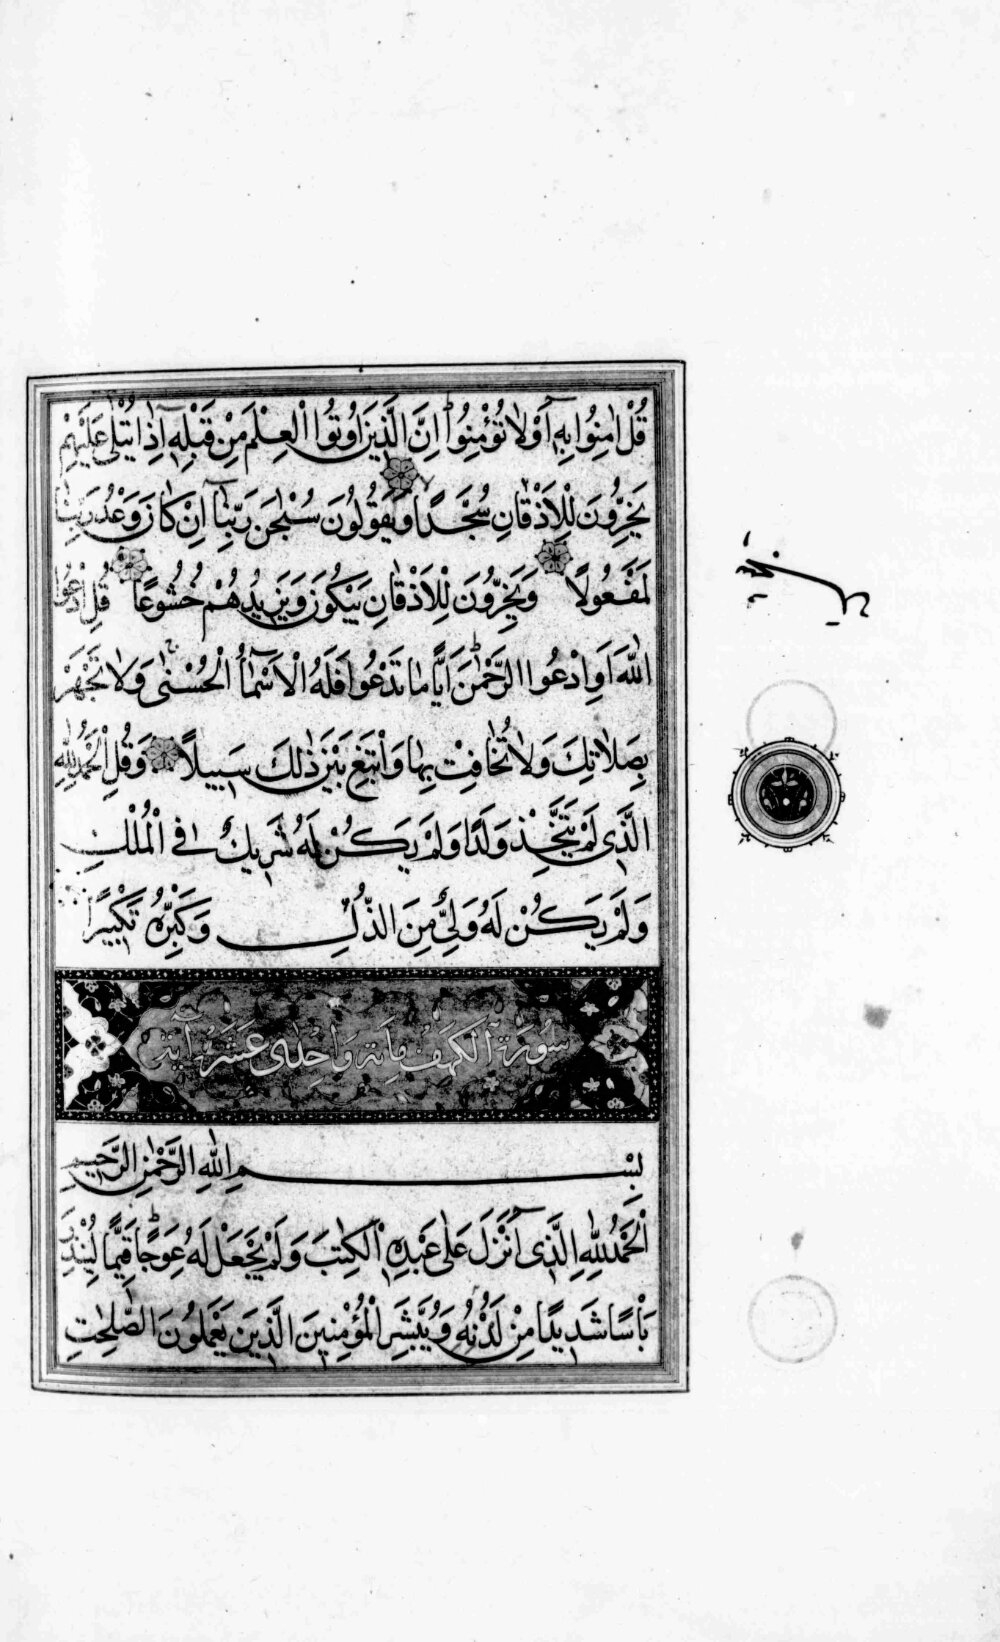 قُلْ اٰمِنُوا بِهٖٓ اَوْلَا تُؤْمِنُوا اِنَّ الَّذٖينَ اُوتُوا الْعِلْمَ مِنْ قَبْلِهٖٓ اِذَا يُتْلٰى عَلَيْهِمْ
يَخِرُّونَ لِلْاَذْقَانِ سُجَّدًا وَيَقُولُونَ سُبْحٰنَ رَبِّنَٓا اِنْ كَانَ وَعْدُ رَبِّنَا
لَمَفْعُولًا وَيَخِرُّونَ لِلْاَذْقَانِ يَبْكُونَ وَيَزٖيدُهُمْ خُشُوعًا قُلِ ادْعُوا
اللّٰهَ اَوِ ادْعُوا الرَّحْمٰنَ اَيًّا مَا تَدْعُوا فَلَهُ الْاَسْمَٓاءُ الْحُسْنٰى وَلَا تَجْهَرْ
بِصَلَاتِكَ وَلَا تُخَافِتْ بِهَا وَابْتَغِ بَيْنَ ذٰلِكَ سَبٖيلًا وَقُلِ الْحَمْدُ لِلّٰهِ
الَّذٖى لَمْ يَتَّخِذْ وَلَدًا وَلَمْ يَكُنْ لَهُ شَرٖيكٌ فِى الْمُلْكِ
وَلَمْ يَكُنْ لَهُ وَلِىٌّ مِنَ الذُّلِّ وَكَبِّرْهُ تَكْبٖيرًا
سُورَةُ الْكَهْفِ مِايَة وَاِحْدٰى عَشَرَ اٰيَة
بِسْمِ اللّٰهِ الرَّحْمٰنِ الرَّحٖيمِ
اَلْحَمْدُ لِلّٰهِ الَّذٖٓى اَنْزَلَ عَلٰى عَبْدِهِ الْكِتٰبَ وَلَمْ يَجْعَلْ لَهُ عِوَجًا قَيِّمًا لِيُنْذِرَ
بَاْسًا شَدٖيدًا مِنْ لَدُنْهُ وَيُبَشِّرَ الْمُؤْمِنٖينَ الَّذٖينَ يَعْمَلُونَ الصّٰلِحٰتِ